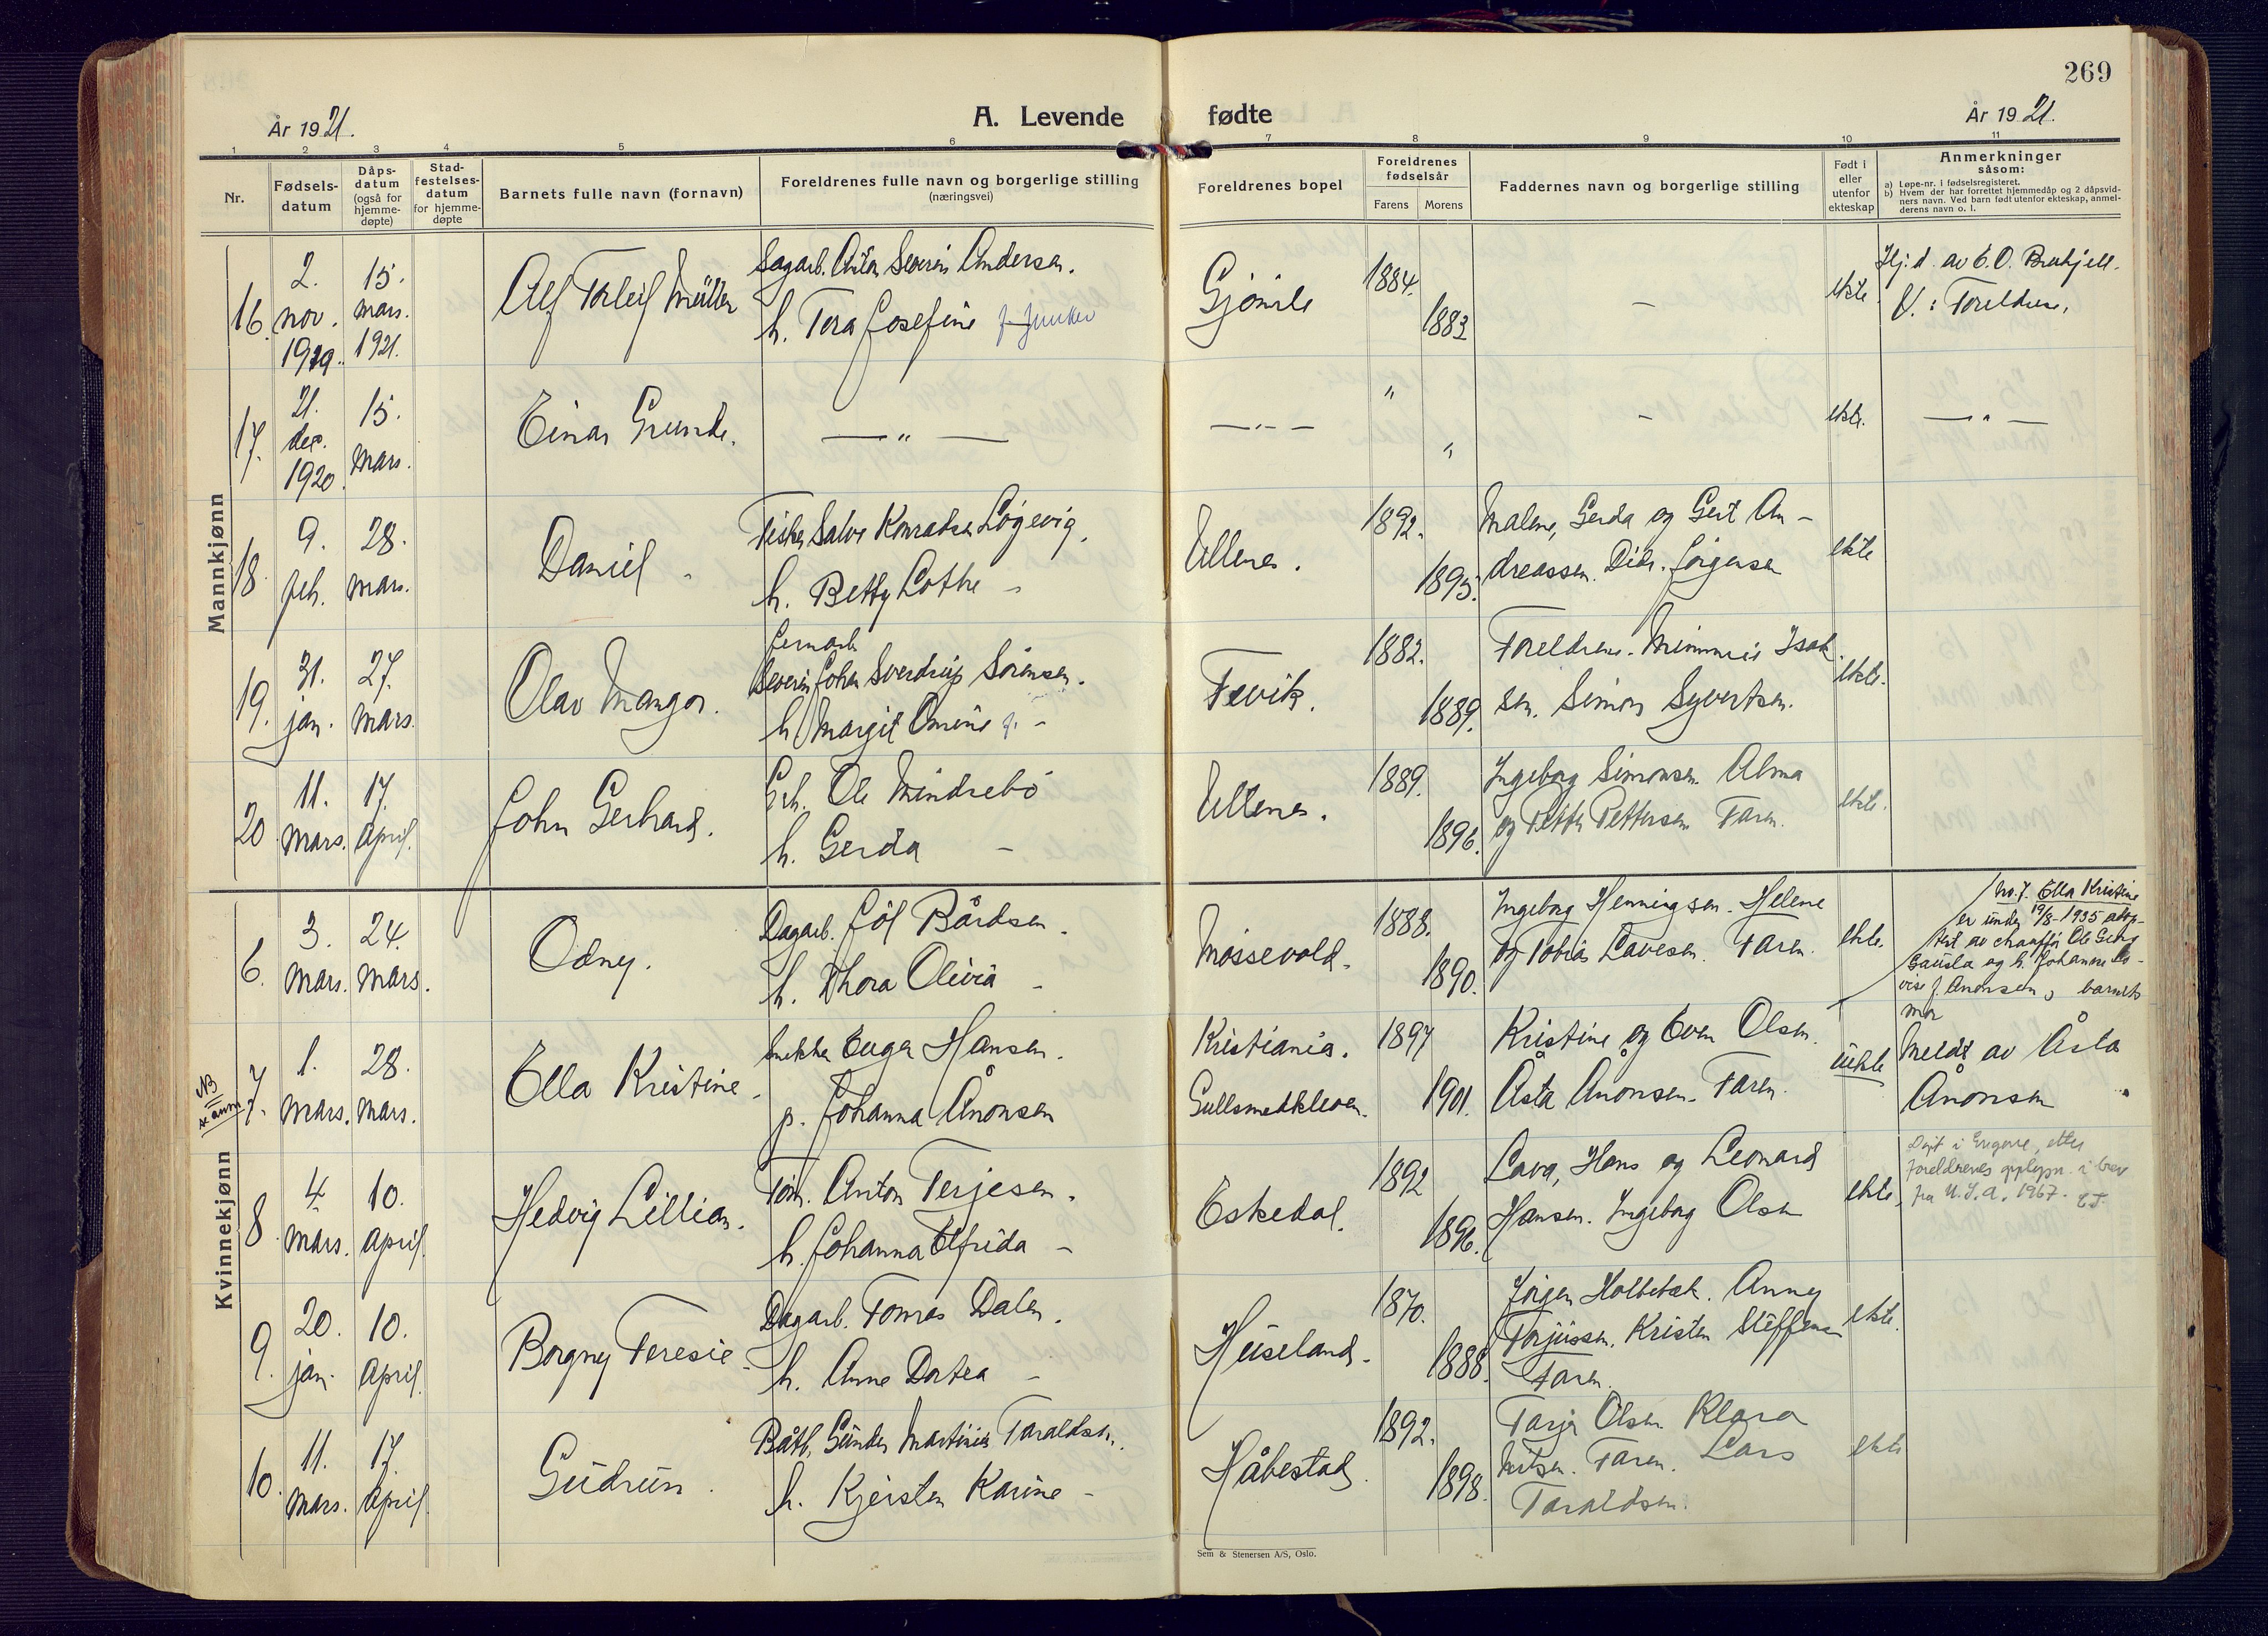 269
År 1921.
A. Levende fødte
År 1921.
1 2 3 4 5 6 7 8 9 10 11
Nr.
Fødsels-
datum
Dåps-
datum
(også for
hjemme-
døpte)
Stad-
festelses-
datum
for hjemme-
døpte
Barnets fulle navn (fornavn)
Foreldrenes fulle navn og borgerlige stilling
(næringsvei)
Foreldrenes bopel
Foreldrenes
fødselsår
Farens
Morens
Faddernes navn og borgerlige stilling
Født i
eller
utenfor
ekteskap
Anmerkninger
såsom:
a) Løpe-nr. i fødselsregisteret.
b) Hvem der har forrettet hjemmedåp og 2 dåpsvid-
ners navn. Ved barn født utenfor ekteskap, anmel-
derens navn o. l.
Mannkjønn
16.
2.
nov.
1919.
15.
mars.
1921.
Alf Torleif Müller
Sagarb. Anton Severin Andersen.
h. Tora Josefine f. Junker
Gjömle
1884.
1883
–
ekte.
Hj.d. av
V.: Foreldrene.
17.
21.
des.
1920.
15.
mars.
Einar Grunde.
— " —
— " —
"
"
–
ekte.
— " —
18.
9.
feb.
28.
mars.
Daniel
Fisker Salve Konradsen Lögevig.
h. Betty Lothe –
Ullenes.
1892.
1895.
Malene, Gerda og Gert An-
dreassen. Didr. Jörgensen
ekte
19.
31.
jan.
27.
mars.
Olav Mangor.
Jernarb
Severin Johan Sverdrup Sörensen.
h. Margit Omine f. –
Fevik.
1882.
1889.
Foreldrene. Mimmi Isak-
sen. Simon Syvertsen.
ekte.
20
11.
mars.
17.
april.
John Gerhard.
Grb. Ole Mindrebö
h. Gerda –
Ullenes.
1889.
1896.
Ingeborg Simonsen. Alma
og Petter Pettersen Faren.
ekte.
Kvinnekjønn
6.
3.
mars.
24.
mars.
Odny.
Dagarb. Joel Bårdsen.
h. Thora Olivia –
Mössevold.
1888.
1890.
Ingeborg Henningsen. Helene
og Tobias Lavesen. Faren.
ekte.
No. 7. Ella Kristine
er under 19/8-1935 adop-
tert av chauffør Ole Georg
Gausla og h. Johanne Lo-
vise f. Anonsen, barnets
mor
NB
se anm
7.
1.
mars.
28.
mars.
Ella Kristine.
Snekker Euger Hansen.
p. Johanna Ånonsen
Kristiania.
Gullsmedkleven.
1897
1901.
Kristine og Even Olsen.
Åsta Ånonsen. Faren.
uekte
Meldt av Åsta
Ånonsen
8.
4.
mars.
10.
april.
Hedvig Lillian.
Töm. Anton Terjesen.
h. Johanna Elfrida –
Eskedal.
1892
1896.
Lava, Hans og Leonard
Hansen. Ingeborg Olsen
ekte.
Døpt i Engene, etter
foreldrenes opplysn. i brev
fra U.S.A. 1967.
9.
20.
jan.
10.
april.
Borgny Teresie.
Dagarb. Tomas Dalen.
h. Anne Dortea –
Huseland.
1870.
1888.
Jörgen Holtebæk. Anny
Torjussen. Kristen Steffensen
Faren.
ekte.
10.
11.
mars.
17.
april.
Gudrun.
Båtb. Gunder Martinius Taraldsen.
h. Kjersten Karine –
Håbestad.
1892.
1898.
Tarje Olsen. Klara
Nilsen. Faren. Lars
Taraldsen.
ekte
Sem & Stenersen A/S, Oslo.